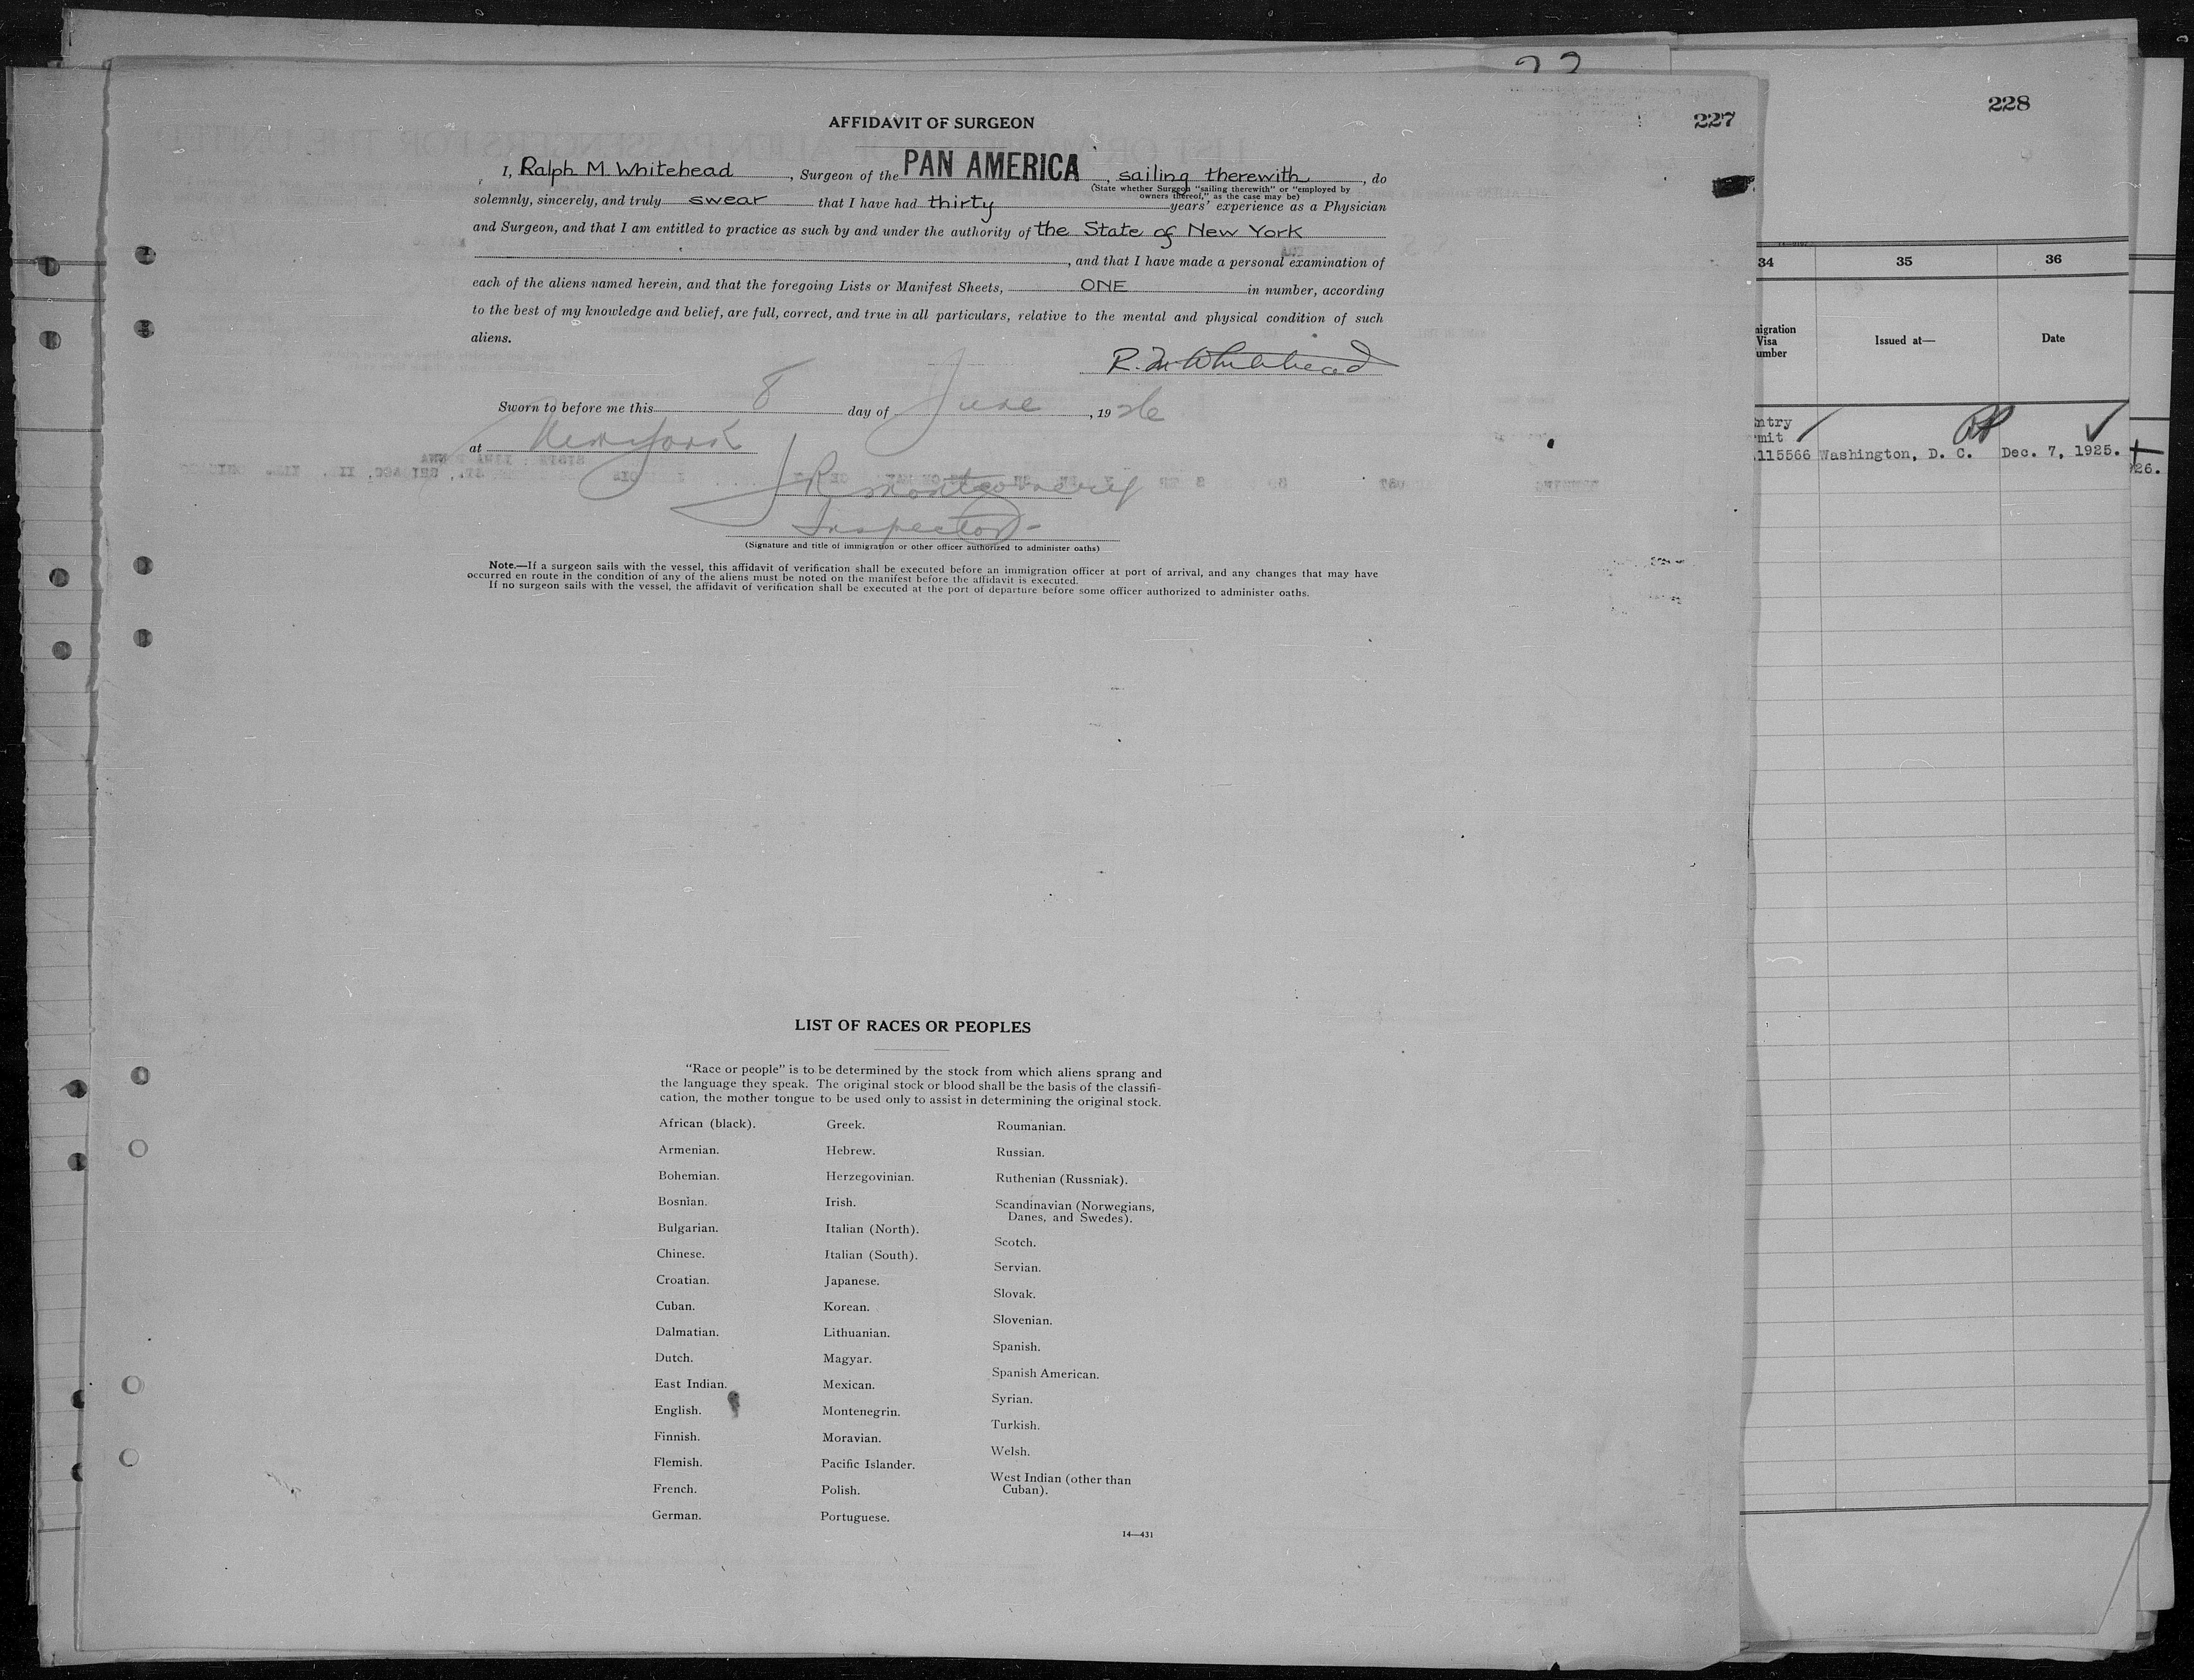 AFFIDAVIT OF SURGEON
227
I, Ralph M. Whitehead, Surgeon of the PAN AMERICA, sailing therewith, do
(State whether Surgeon "sailing therewith" or "employed by
owners thereof," as the case may be)
solemnly, sincerely, and truly swear that I have had thirty years' experience as a Physician
and Surgeon, and that I am entitled to practice as such by and under the authority of the State of New York
, and that I have made a personal examination of
each of the aliens named herein, and that the foregoing Lists or Manifest Sheets, ONE in number, according
to the best of my knowledge and belief, are full, correct, and true in all particulars, relative to the mental and physical condition of such
aliens.
R. M. Whitehead
Sworn to before me this 8 day of June, 1926
at New York
J R Montgomery
Inspector
(Signature and title of immigration or other officer authorized to administer oaths)
Note.—If a surgeon sails with the vessel, this affidavit of verification shall be executed before an immigration officer at port of arrival, and any changes that may have
occurred en route in the condition of any of the aliens must be noted on the manifest before the affidavit is executed.
If no surgeon sails with the vessel, the affidavit of verification shall be executed at the port of departure before some officer authorized to administer oaths.
LIST OF RACES OR PEOPLES
"Race or people" is to be determined by the stock from which aliens sprang and
the language they speak. The original stock or blood shall be the basis of the classifi-
cation, the mother tongue to be used only to assist in determining the original stock.
African (black).
Armenian.
Bohemian.
Bosnian.
Bulgarian.
Chinese.
Croatian.
Cuban.
Dalmatian.
Dutch.
East Indian.
English.
Finnish.
Flemish.
French.
German.
Greek.
Hebrew.
Herzegovinian.
Irish.
Italian (North).
Italian (South).
Japanese.
Korean.
Lithuanian.
Magyar.
Mexican.
Montenegrin.
Moravian.
Pacific Islander.
Polish.
Portuguese.
Roumanian.
Russian.
Ruthenian (Russniak).
Scandinavian (Norwegians,
Danes, and Swedes).
Scotch.
Servian.
Slovak.
Slovenian.
Spanish.
Spanish American.
Syrian.
Turkish.
Welsh.
West Indian (other than
Cuban).
14—431
228
34 35 36
Visa
Issued at—
Date
115566 Washington, D. C. Dec. 7, 1925.
26.